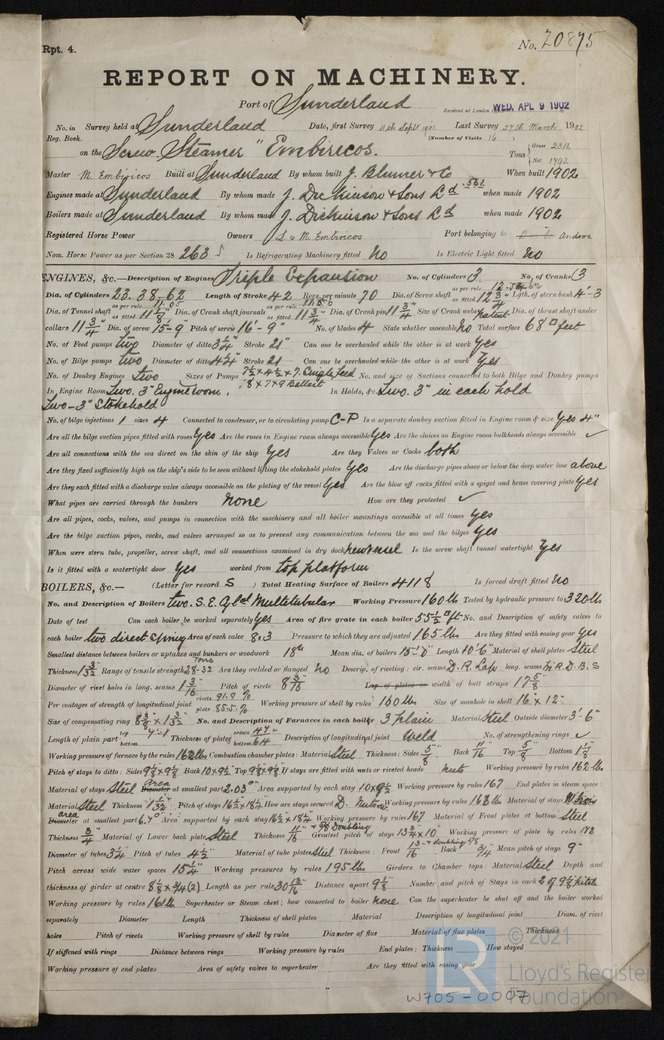 Rpt. 4.
No. 20875
REPORT ON MACHINERY.
Port of Sunderland
Received at London WED. APL 9 1902
No. in Survey held at Sunderland Date, first Survey 11th Sept 1901 Last Survey 27th March 1902
Reg. Book. (Number of Visits 16
on the Screw Steamer "Embiricos. Tons Gross 2311 Net 1493
Master M. Embiricos Built at Sunderland By whom built J. Blumer & Co When built 1902
Engines made at Sunderland By whom made J. Dickinson & Sons Ld .561 when made 1902
Boilers made at Sunderland By whom made J. Dickinson & Sons Ld when made 1902
Registered Horse Power Owners L & M. Embiricos Port belonging to Andros
Nom. Horse Power as per Section 28 263 Is Refrigerating Machinery fitted No Is Electric Light fitted No
ENGINES, &c.—Description of Engines Triple Expansion No. of Cylinders 3 No. of Cranks 3
Dia. of Cylinders 23. 38. 62 Length of Stroke 42 Revs. per minute 70 Dia. of Screw shaft as per rule as fitted 12 3/4 Lgth. of stern bush 4'-3
Dia. of Tunnel shaft as per rule 11.05 as fitted 11 1/8 Dia. of Crank shaft journals as per rule 11.6 as fitted 11 3/4 Dia. of Crank pin 11 3/4 Size of Crank webs Dia. of thrust shaft under
collars 11 3/4 Dia. of screw 15-9 Pitch of screw 16'-9" No. of blades 4 State whether moveable No Total surface 68 □ feet
No. of Feed pumps two Diameter of ditto 3 1/4 Stroke 21" Can one be overhauled while the other is at work Yes
No. of Bilge pumps two Diameter of ditto 4 1/4 Stroke 21 Can one be overhauled while the other is at work Yes
No. of Donkey Engines two Sizes of Pumps 7 1/2 x 4 1/2 x 7. Single Feed No. and size of Suctions connected to both Bilge and Donkey pumps
In Engine Room Two. 3" Engine room, 8 x 7 x 9 Ballast In Holds, &c. Two. 3" in each hold
Two - 3" Stokehold
No. of bilge injections 1 sizes 4 Connected to condenser, or to circulating pump C-P Is a separate donkey suction fitted in Engine room & size Yes 4"
Are all the bilge suction pipes fitted with roses Yes Are the roses in Engine room always accessible Yes Are the sluices on Engine room bulkheads always accessible ✓
Are all connections with the sea direct on the skin of the ship Yes Are they Valves or Cocks both
Are they fixed sufficiently high on the ship's side to be seen without lifting the stokehold plates Yes Are the discharge pipes above or below the deep water line above
Are they each fitted with a discharge valve always accessible on the plating of the vessel Yes Are the blow off cocks fitted with a spigot and brass covering plate Yes
What pipes are carried through the bunkers None How are they protected ✓
Are all pipes, cocks, valves, and pumps in connection with the machinery and all boiler mountings accessible at all times Yes
Are the bilge suction pipes, cocks, and valves arranged so as to prevent any communication between the sea and the bilges Yes
When were stern tube, propeller, screw shaft, and all connections examined in dry dock new vessel Is the screw shaft tunnel watertight Yes
Is it fitted with a watertight door Yes worked from top platform
BOILERS, &c.— (Letter for record S) Total Heating Surface of Boilers 4118 Is forced draft fitted No
No. and Description of Boilers two. S.E. Cyl Multitubular Working Pressure 160 lb Tested by hydraulic pressure to 320 lb
Date of test Can each boiler be worked separately Yes Area of fire grate in each boiler 55 1/2 □ ft No. and Description of safety valves to
each boiler two direct spring Area of each valve 8.3 Pressure to which they are adjusted 165 lb Are they fitted with easing gear Yes
Smallest distance between boilers or uptakes and bunkers or woodwork 18" Mean dia. of boilers 15'-0" Length 10'-6" Material of shell plates Steel
Thickness 1 3/32 Range of tensile strength 28-32 Tons Are they welded or flanged No Descrip. of riveting : cir. seams D.R. Lap long. seams R.D.B.S
Diameter of rivet holes in long. seams 1 3/16 Pitch of rivets 8 3/16 Lap of plates or width of butt straps 17 5/8
Per centages of strength of longitudinal joint rivets 91.9 % plate 85.5 % Working pressure of shell by rules 160 lb Size of manhole in shell 16" x 12"
Size of compensating ring 8 3/8 x 1 3/32 No. and Description of Furnaces in each boiler 3 plain Material Steel Outside diameter 3'-6"
Length of plain part top bottom Thickness of plates crown 47/64 bottom Description of longitudinal joint Weld No. of strengthening rings ✓
Working pressure of furnace by the rules 162 lb Combustion chamber plates : Material Steel Thickness : Sides 5/8 Back 11/16 Top 5/8 Bottom 1 1/8
Pitch of stays to ditto : Sides 9 1/8 x 9 1/8 Back 10 x 9 1/2 Top 9 1/8 x 9 1/8 If stays are fitted with nuts or riveted heads Nuts Working pressure by rules 162 lb
Material of stays Steel Area Diameter at smallest part 2.03" Area supported by each stay 10 x 9 1/2 Working pressure by rules 167 End plates in steam space :
Material Steel Thickness 1 1/32 Pitch of stays 16 1/2 x 18 1/4 How are stays secured D. Nuts Working pressure by rules 168 lb Material of stays
area Diameter at smallest part 6.4" Area supported by each stay 16 1/2 x 18 1/4 Working pressure by rules 167 Material of Front plates at bottom Steel
Thickness 3/4 Material of Lower back plate Steel Thickness 11/16 Doubling Greatest pitch of stays 13 3/4 x 10 Working pressure of plate by rules 172
Diameter of tubes 3 1/4 Pitch of tubes 4 1/2 Material of tube plates Steel Thickness : Front 13/16 & doubling Back 3/4 Mean pitch of stays 9"
Pitch across wide water spaces 15 1/4 Working pressures by rules 195 lb Girders to Chamber tops : Material Steel Depth and
thickness of girder at centre 8 1/8 x 3/4 (2) Length as per rule 30 13/16 Distance apart 9 1/8 Number and pitch of Stays in each 2 @ 9 1/8 pitch
Working pressure by rules 161 lb Superheater or Steam chest; how connected to boiler None Can the superheater be shut off and the boiler worked
separately Diameter Length Thickness of shell plates Material Description of longitudinal joint Diam. of rivet
holes Pitch of rivets Working pressure of shell by rules Diameter of flue Material of flue plates Thickness
If stiffened with rings Distance between rings Working pressure by rules End plates : Thickness How stayed
Working pressure of end plates Area of safety valves to superheater Are they fitted with easing gear
© 2021
Lloyd's Register
Foundation
W705-0007